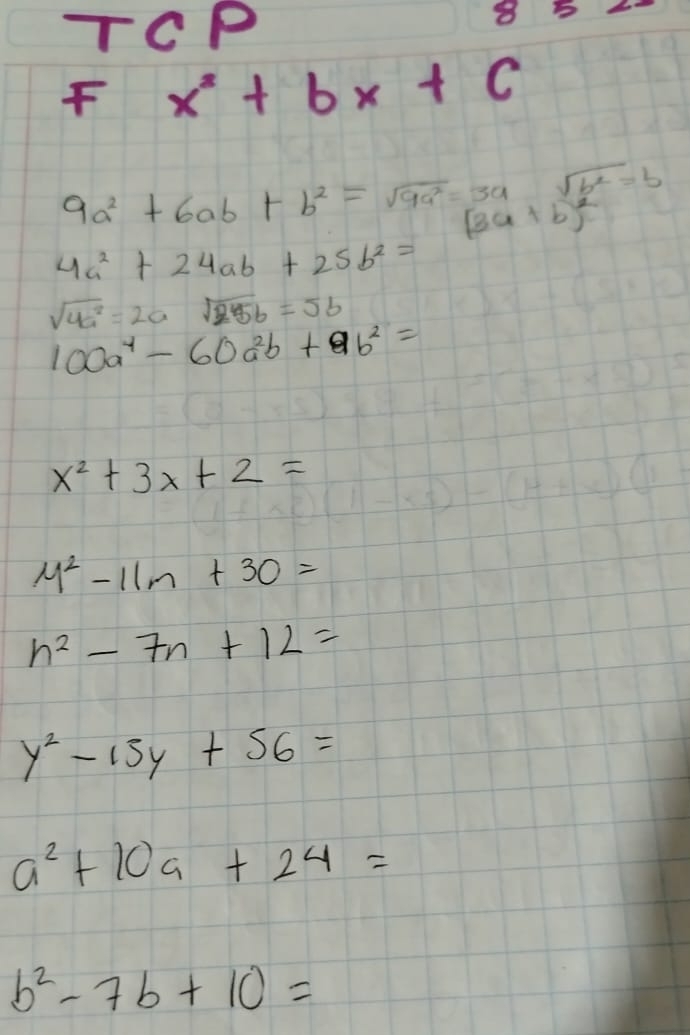 8 5
TCP
F x² + bx + C
9a² + 6ab + b² = √9a² = 3a √b² = b
(3a + b)²
4a² + 24ab + 25b² =
√4a² = 2a √25b = 5b
100a⁴ - 60a²b + 9b² =
x² + 3x + 2 =
M² - 11m + 30 =
n² - 7n + 12 =
y² - 15y + 56 =
a² + 10a + 24 =
b² - 7b + 10 =